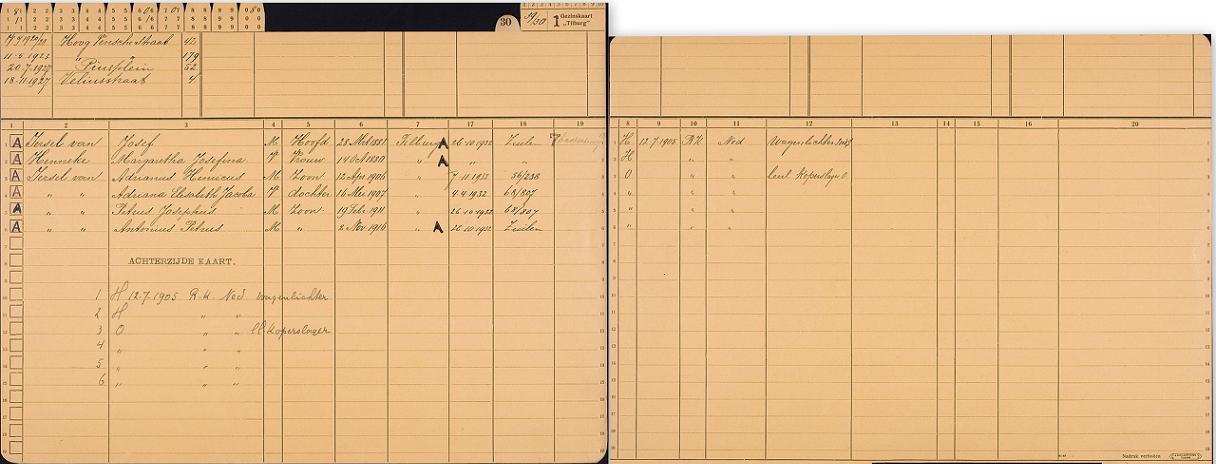 30 54/30 1 Gezinskaart "Tilburg"
1920/20 Hoog Straat 42
11-6-1923 " " 179
20-7-1927 Piusplein 52
18-11-1927 Veliusstraat 4
1 2 3 4 5 6 7 17 18 19
A Iersel van Josef M Hoofd 28 Mrt 1881 Tilburg A 26 10 1932 Zuilen
A Henneke Margaretha Josefina V Vrouw 14 Oct 1880 " A " " "
A Iersel van Adrianus Henricus M Zoon 12 Apr 1906 " 7-11-1932 56/238
A " " Adriana Elisabeth Jacoba V dochter 16 Mei 1907 " 4-4-1932 68/807
A " " Petrus Josephus M Zoon 19 Febr 1911 " 26-10-1932 68/807
A " " Antonius Petrus M " 2 Nov 1916 " A 26 10 1932 Zuilen
ACHTERZIJDE KAART.
1 H 12-7-1905 R.K. Ned wagenlichter
2 H " "
3 O " " koperslager
4 " " "
5 " " "
6 " " "
8 9 10 11 12 13 14 15 16 20
H 12-7-1905 R.K. Ned Wagenlichter
H " "
O " " koperslager O
" " "
" " "
" " "
Nadruk verboden